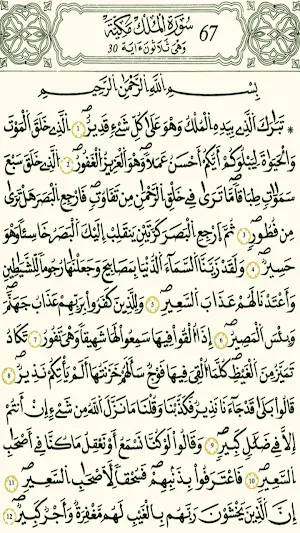 سُورَةُ المُلْكِ مَكِّيَّةٌ 67
وَهِيَ ثَلَاثُونَ ءَايَةً 30
بِسْمِ اللَّهِ الرَّحْمَٰنِ الرَّحِيمِ
* تَبَٰرَكَ الَّذِي بِيَدِهِ الْمُلْكُ وَهُوَ عَلَىٰ كُلِّ شَيْءٍ قَدِيرٌ ۝١ الَّذِي خَلَقَ الْمَوْتَ
وَالْحَيَوٰةَ لِيَبْلُوَكُمْ أَيُّكُمْ أَحْسَنُ عَمَلًا وَهُوَ الْعَزِيزُ الْغَفُورُ ۝٢ الَّذِي خَلَقَ سَبْعَ
سَمَٰوَٰتٍ طِبَاقًا مَّا تَرَىٰ فِي خَلْقِ الرَّحْمَٰنِ مِن تَفَٰوُتٍ فَارْجِعِ الْبَصَرَ هَلْ تَرَىٰ
مِن فُطُورٍ ۝٣ ثُمَّ ارْجِعِ الْبَصَرَ كَرَّتَيْنِ يَنقَلِبْ إِلَيْكَ الْبَصَرُ خَاسِئًا وَهُوَ
حَسِيرٌ ۝٤ وَلَقَدْ زَيَّنَّا السَّمَاءَ الدُّنْيَا بِمَصَٰبِيحَ وَجَعَلْنَٰهَا رُجُومًا لِّلشَّيَٰطِينِ
وَأَعْتَدْنَا لَهُمْ عَذَابَ السَّعِيرِ ۝٥ وَلِلَّذِينَ كَفَرُوا بِرَبِّهِمْ عَذَابُ جَهَنَّمَ
وَبِئْسَ الْمَصِيرُ ۝٦ إِذَا أُلْقُوا فِيهَا سَمِعُوا لَهَا شَهِيقًا وَهِيَ تَفُورُ ۝٧ تَكَادُ
تَمَيَّزُ مِنَ الْغَيْظِ كُلَّمَا أُلْقِيَ فِيهَا فَوْجٌ سَأَلَهُمْ خَزَنَتُهَا أَلَمْ يَأْتِكُمْ نَذِيرٌ ۝٨
قَالُوا بَلَىٰ قَدْ جَاءَنَا نَذِيرٌ فَكَذَّبْنَا وَقُلْنَا مَا نَزَّلَ اللَّهُ مِن شَيْءٍ إِنْ أَنتُمْ
إِلَّا فِي ضَلَٰلٍ كَبِيرٍ ۝٩ وَقَالُوا لَوْ كُنَّا نَسْمَعُ أَوْ نَعْقِلُ مَا كُنَّا فِي أَصْحَٰبِ
السَّعِيرِ ۝١٠ فَاعْتَرَفُوا بِذَنبِهِمْ فَسُحْقًا لِّأَصْحَٰبِ السَّعِيرِ ۝١١
إِنَّ الَّذِينَ يَخْشَوْنَ رَبَّهُم بِالْغَيْبِ لَهُم مَّغْفِرَةٌ وَأَجْرٌ كَبِيرٌ ۝١٢